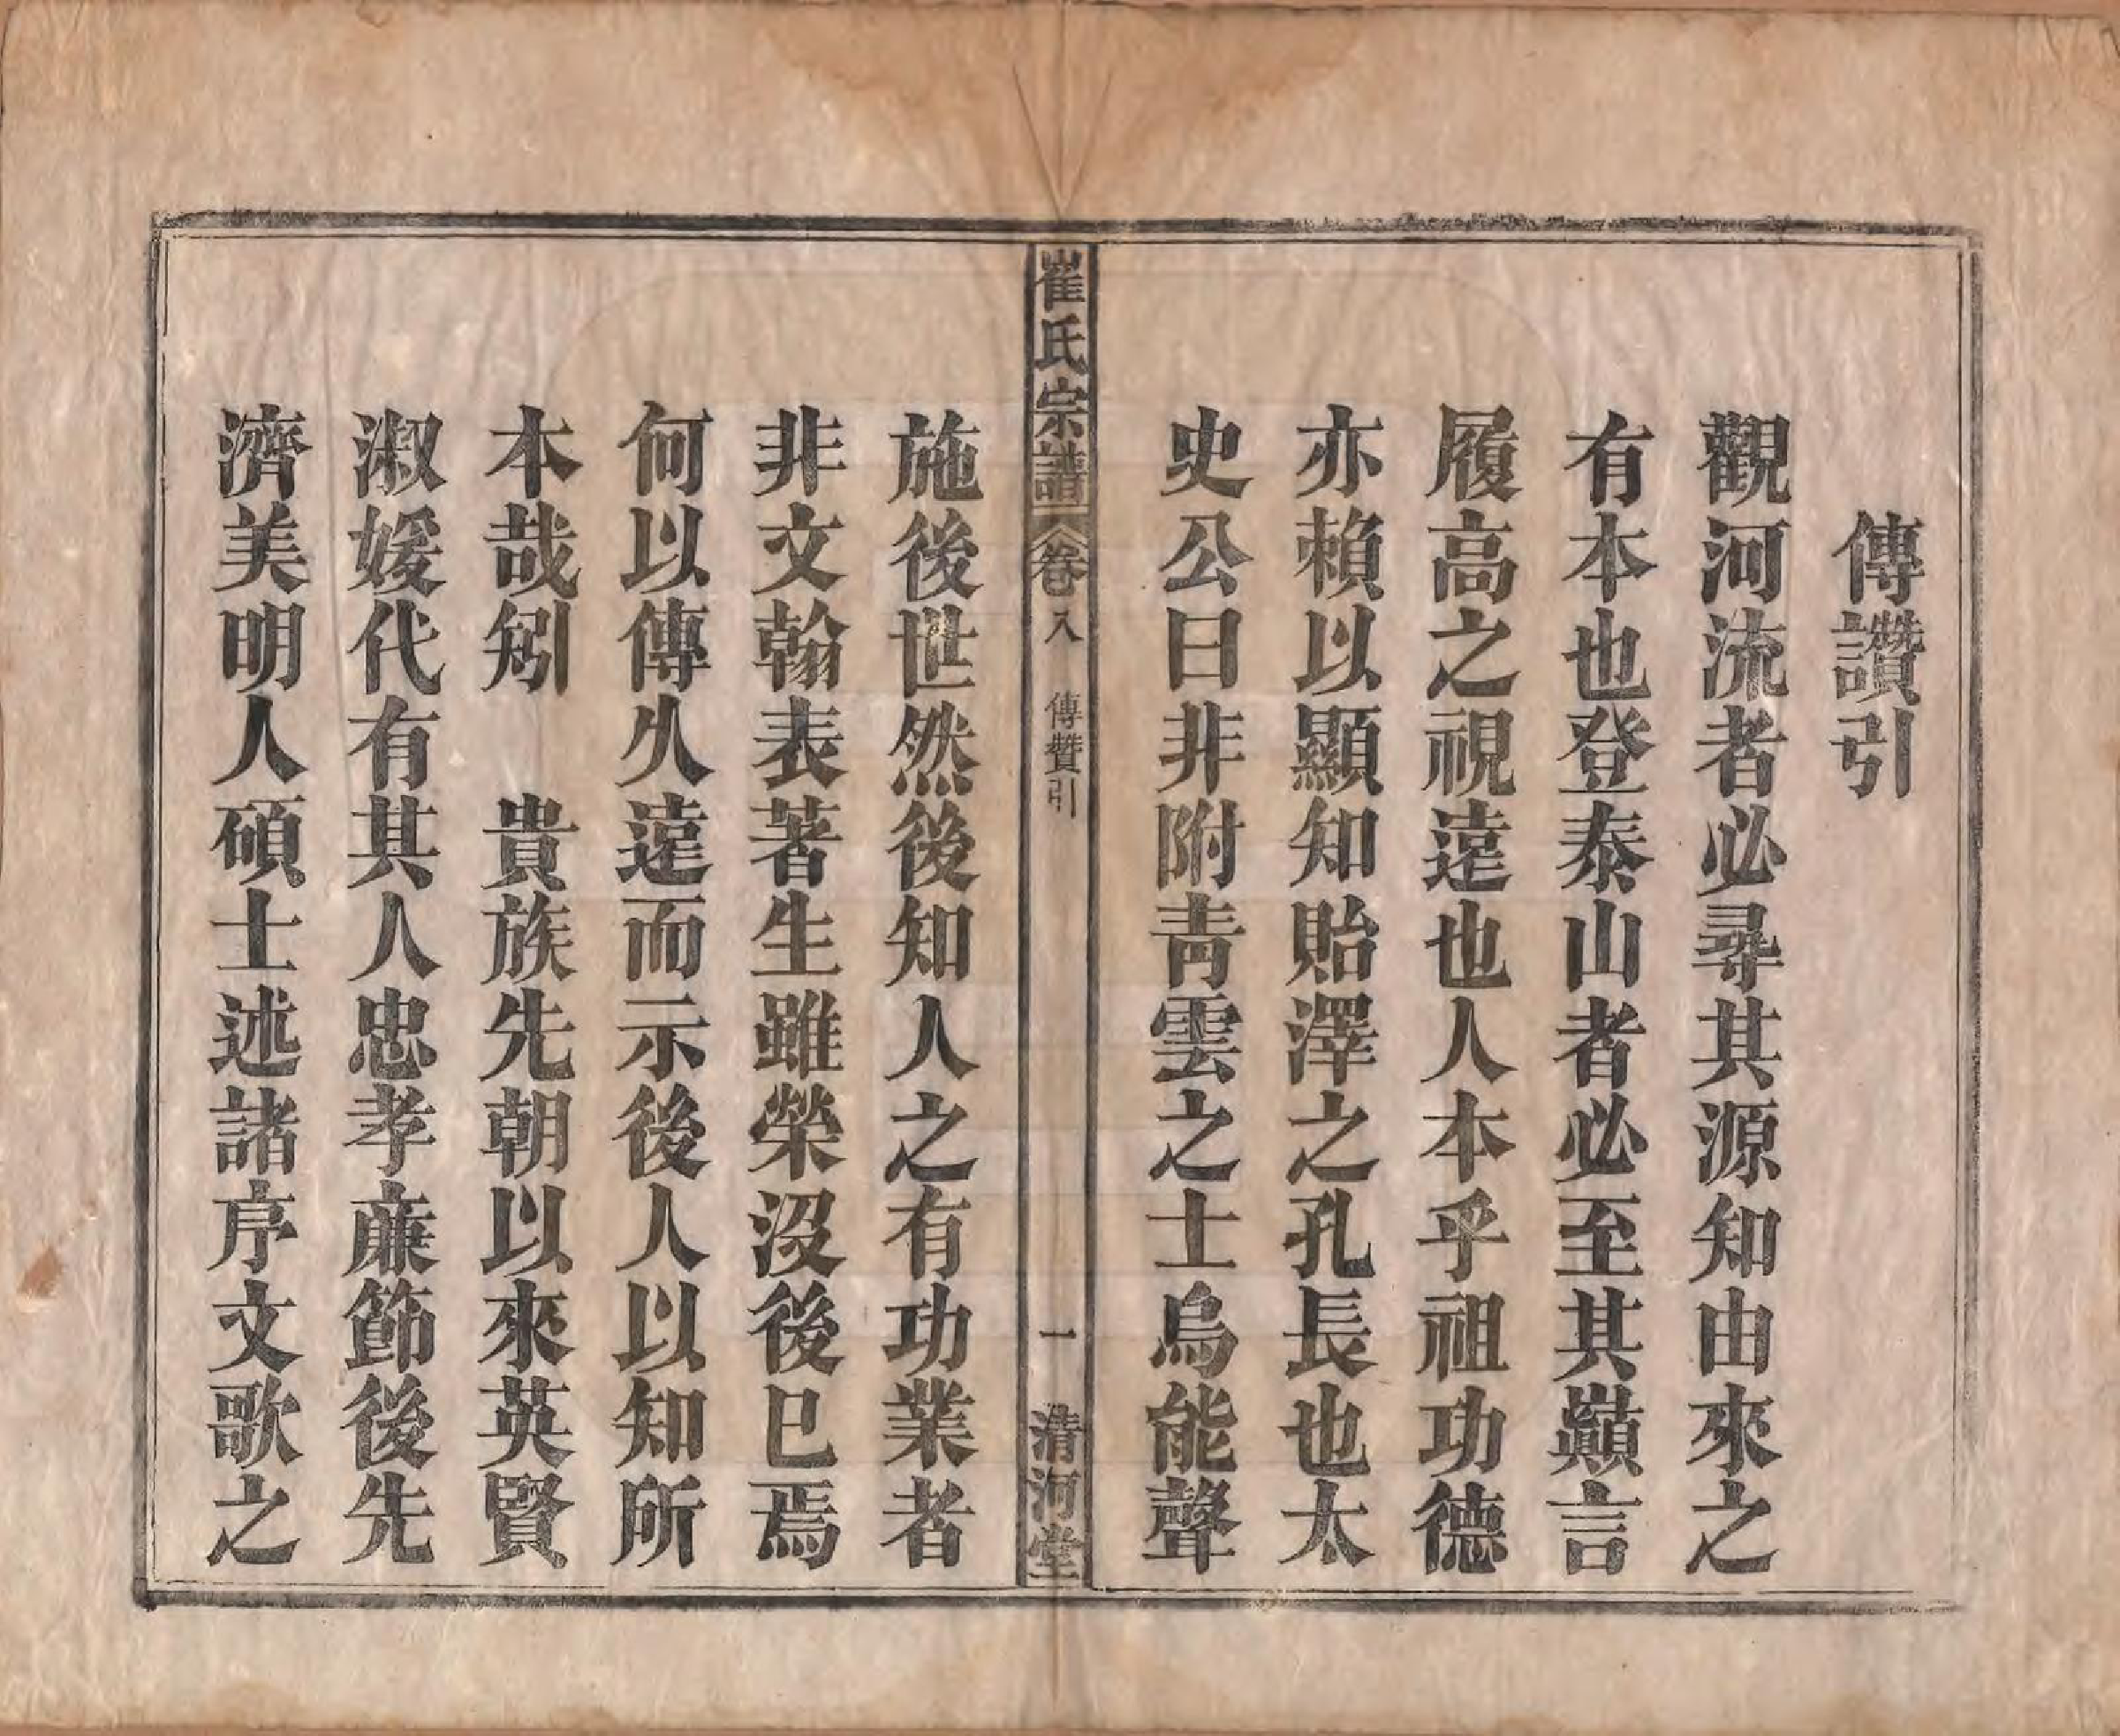 傳讚引
觀河流者必尋其源知由來之
有本也登泰山者必至其巔言
履高之視遠也人本乎祖功德
亦賴以顯知貽澤之孔長也太
史公曰非附靑雲之士烏能聲
崔氏宗譜
卷八
傳贊引
一
清河堂
施後世然後知人之有功業者
非文翰表著生雖榮沒後已焉
何以傳久遠而示後人以知所
本哉矧　貴族先朝以來英賢
淑媛代有其人忠孝廉節後先
濟美明人碩士述諸序文歌之